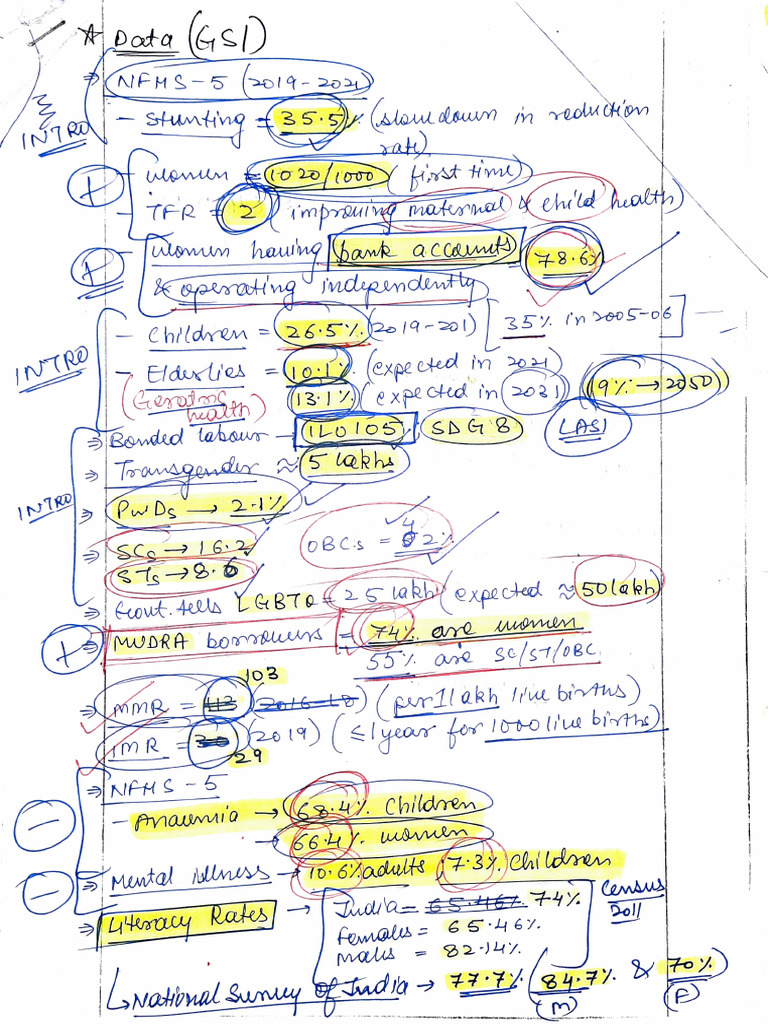 * Data (GSI)
⇒ NFHS-5 (2019-2021)
INTRO
- Stunting = 35.5% (slowdown in reduction
rate)
+ - women = 1020/1000 (first time)
- TFR = 2 (improving maternal & child health)
+ - women having bank accounts = 78.6%
& operating independently
INTRO
- Children = 26.5% (2019-201) [35% in 2005-06]
- Elderlies = 10.1% (expected in 2021)
(Geriatric health) 13.1% (expected in 2031) (19% → 2050)
⇒ Bonded labour - ILO105, SDG 8 LASI
INTRO
⇒ Transgender ≈ 5 lakhs
⇒ PwDs → 2.1%
⇒ SCs → 16.2 OBCs = 42%
⇒ STs → 8.6
⇒ Govt. tells LGBTQ = 25 lakh (expected ≈ 50 lakh)
+ ⇒ MUDRA borrowers = 74% are women
55% are SC/ST/OBC
103
⇒ MMR = 113 (2016-18) (per 1 lakh live births)
⇒ IMR = 30 (2019) (≤1 year for 1000 live births)
29
⇒ NFHS-5
- - Anaemia → 68.4% Children
→ 66.4% women
- ⇒ Mental illness → 10.6% adults, 7.3% Children
⇒ Literacy Rates → India = 65.46% 74% Census
Females = 65.46% 2011
Males = 82.14%
↳ National Survey of India → 77.7% (84.7% & 70%)
(M) (F)